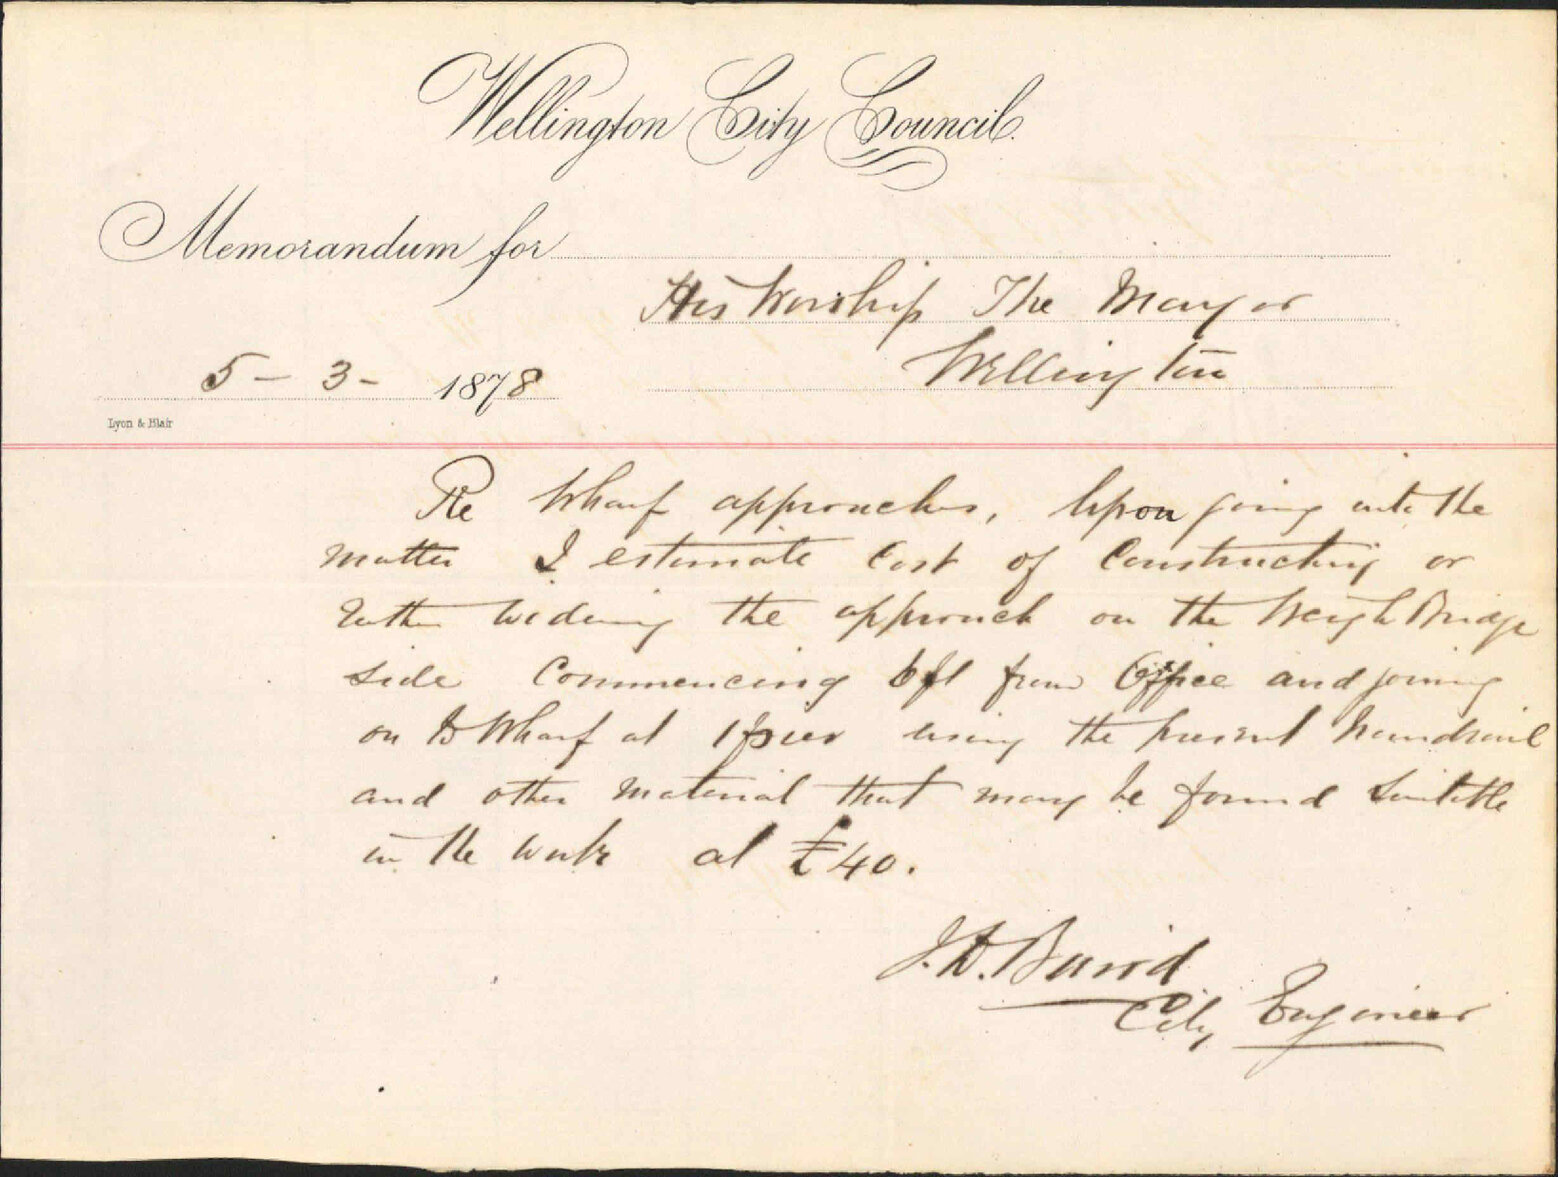 Wellington City Council.
Memorandum for
His Worship The Mayor
Wellington
5 - 3 - 1878
Lyon & Blair
Re Wharf approaches, Upon going into the
matter I estimate Cost of Constructing or
rather widening the approach on the Weigh Bridge
side Commencing 6ft from Office and joining
on to Wharf at 1 pier using the present handrail
and other material that may be found suitable
in the work at £40.
J.D. Baird
City Engineer